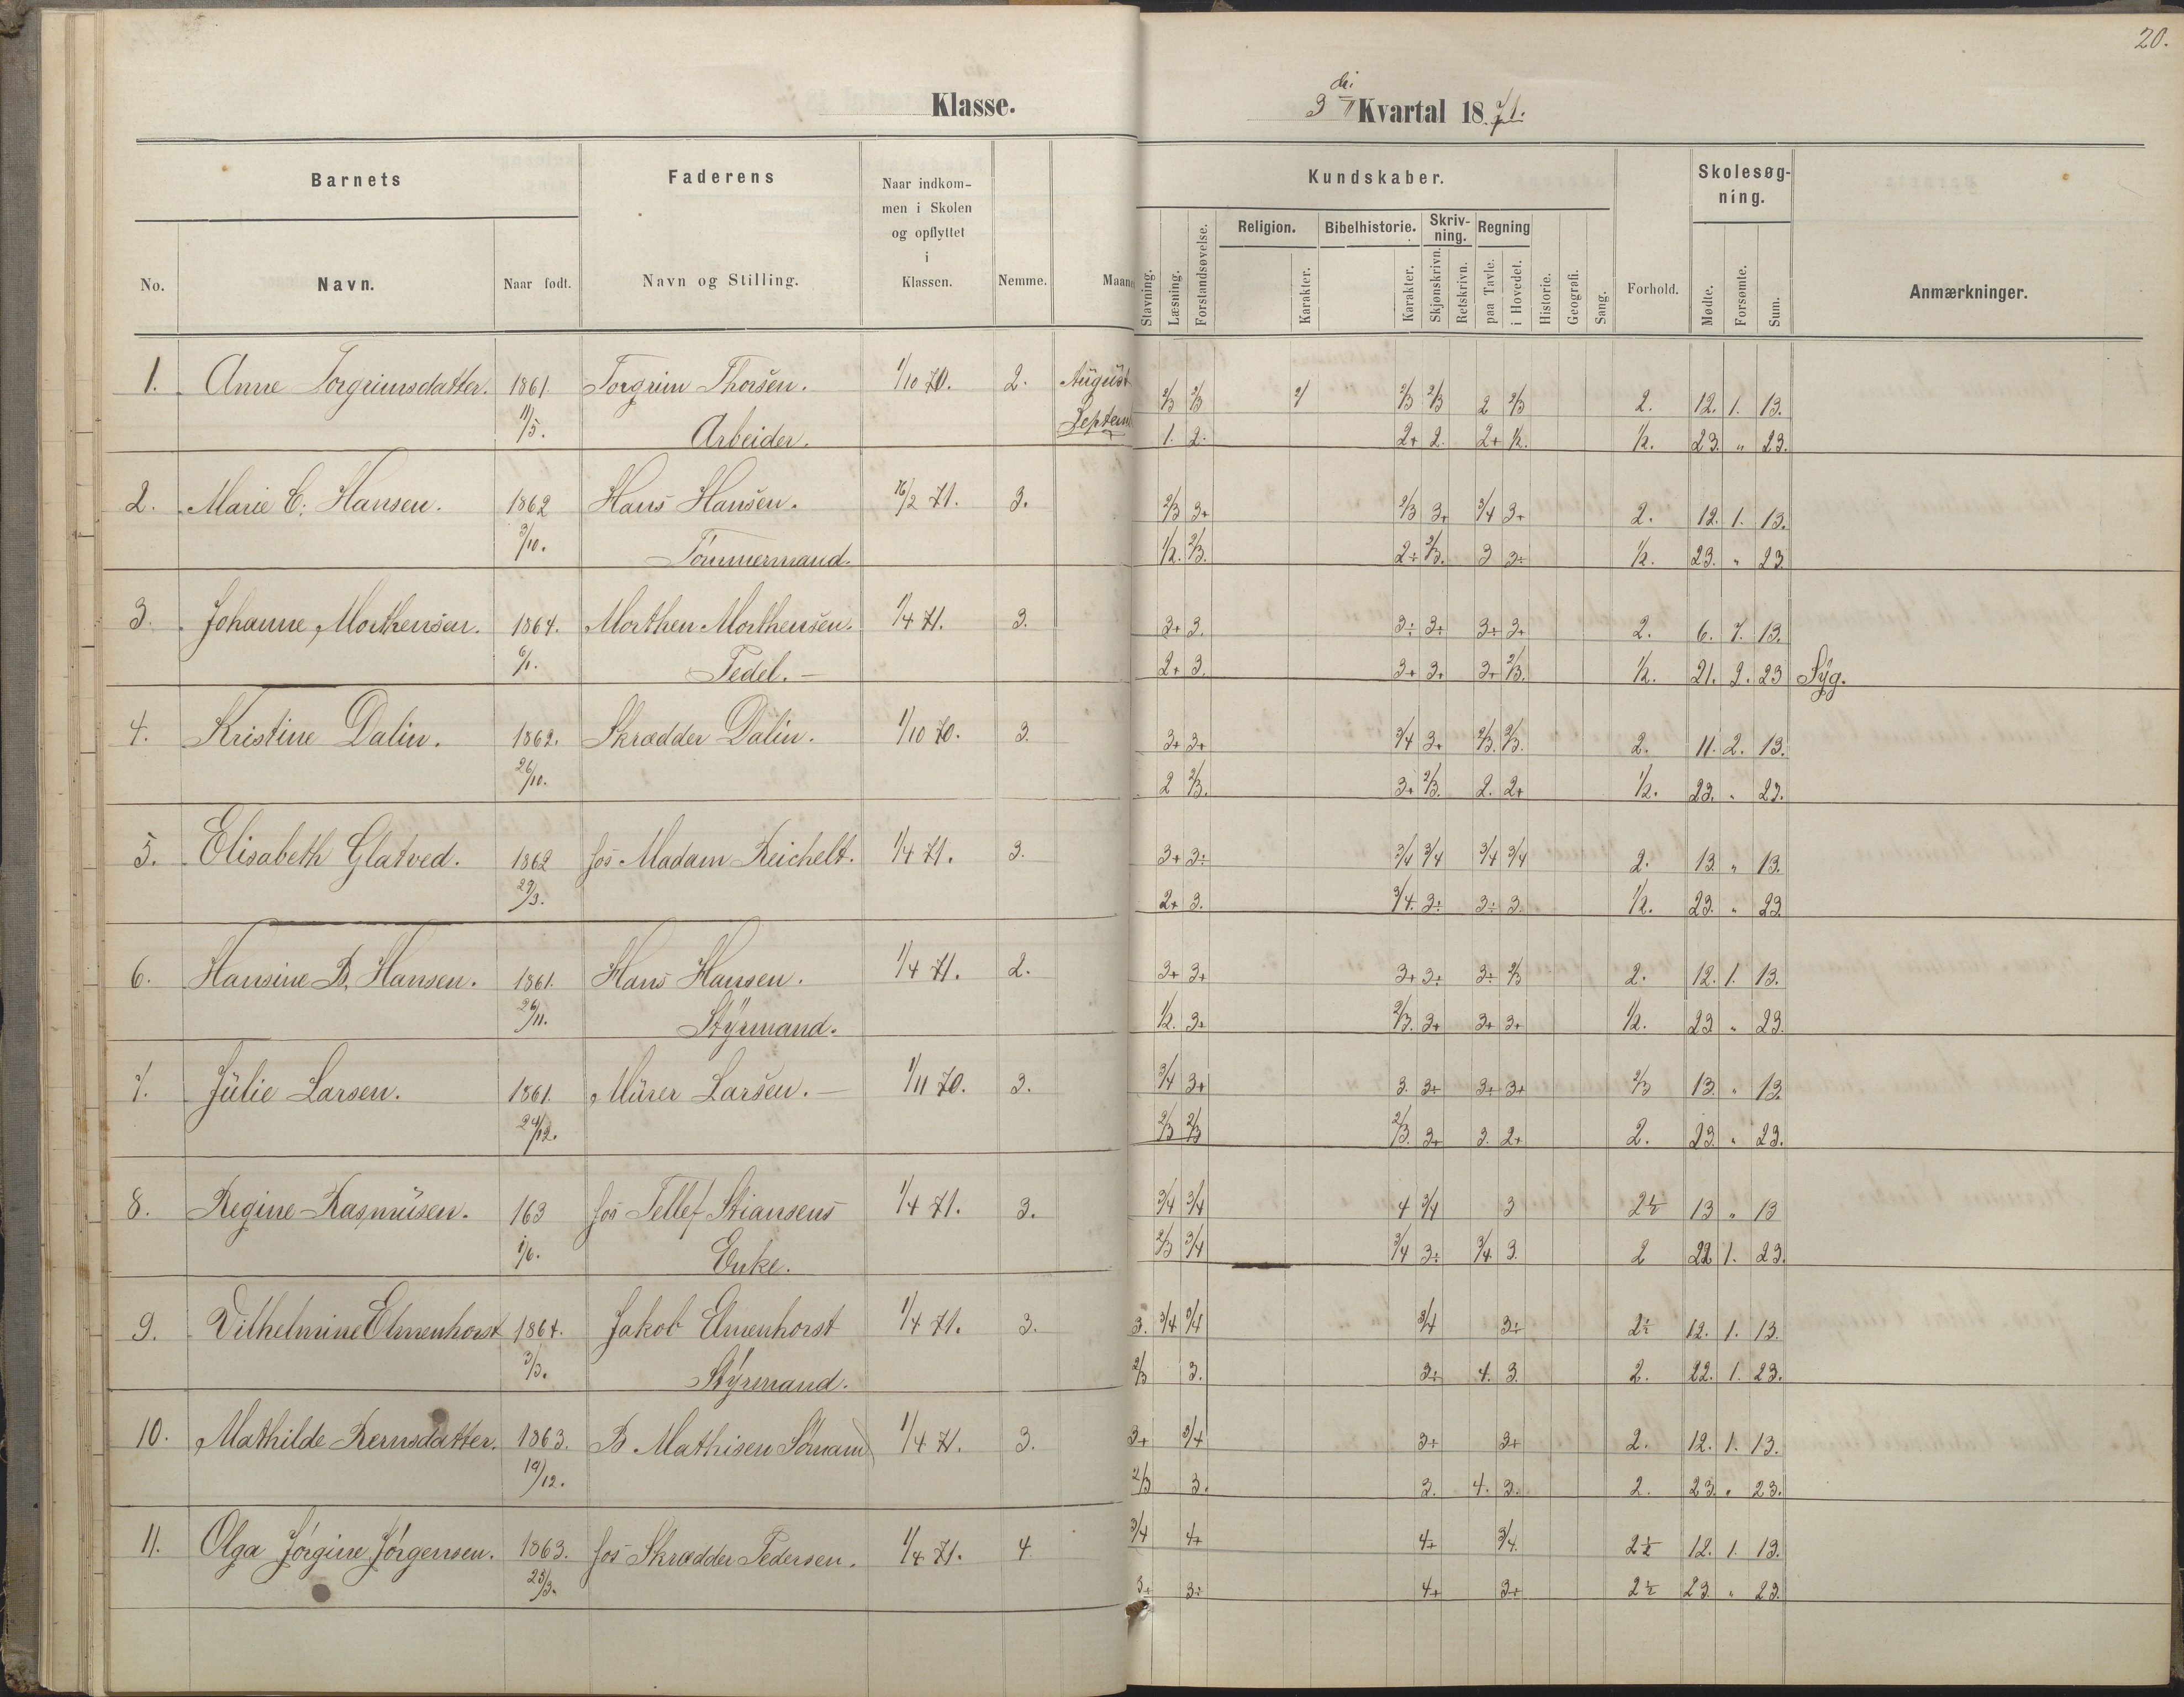 20.
Klasse.
3die Kvartal 1871.
Barnets
Faderens
Naar indkom-
men i Skolen
og opflyttet
i
Klassen.
Kundskaber.
Skolesøg-
ning.
Religion. Bibelhistorie. Skriv-
ning. Regning
No. Navn. Naar født. Navn og Stilling. Nemme. Maaned
Stavning. Læsning. Forstandsøvelse. Karakter. Karakter. Skjønskrivn. Retskrivn. paa Tavle. i Hovedet. Historie. Geografi. Sang. Forhold. Mødte. Forsømte. Sum. Anmærkninger.
1. Anne Torgrimsdatter. 1861. Torgrim Thorsen. 1/10 70. 2. August 2/3 2/3 2/3 2/3 2 2/3 2. 12. 1. 13.
11/5. Arbeider. Septem. 1. 2. 2+ 2. 2+ 1/2. 1/2. 23. " 23.
2. Marie C. Hansen. 1862 Hans Hansen. 16/2 71. 3. 2/3 3+ 2/3 3+ 3/4 3+ 2. 12. 1. 13.
3/10. Tömmermand. 1/2. 2/3. 2÷ 2/3. 3 3÷ 1/2. 23. " 23
3. Johanne Morthensen. 1864. Morthen Morthensen. 1/4 71. 3. 3+ 3. 3÷ 3÷ 3÷ 3+ 2. 6. 7. 13.
6/1. Pedel. 2+ 3. 3+ 3+ 3+ 2/3. 1/2. 21. 2. 23 Syg.
4. Kristine Dalin. 1862. Skrædder Dalin. 1/10 70. 3. 3+ 3+ 3/4 3+ 2/3. 2/3. 2. 11. 2. 13.
26/10. 2 2/3. 3+ 2/3. 2. 2+ 1/2. 23. " 23.
5. Elisabeth Glatved. 1862 hos Madam Reichelt. 1/4 71. 3. 3+ 3÷ 3/4 3/4 3/4 3/4 2. 13. " 13.
29/3. 2+ 3. 3/4. 3÷ 3÷ 3. 1/2. 23. " 23
6. Hansine B. Hansen. 1861. Hans Hansen. 1/4 71. 2. 3+ 3+ 3+ 3÷ 3÷ 2/3 2. 12. 1. 13.
26/11. Styrmand. 1/2. 3+ 2/3. 3+ 3+ 3+ 1/2. 23 " 23.
7. Julie Larsen. 1861. Murer Larsen. 1/11 70. 3. 3/4 3+ 3. 3+ 3+ 3+ 2/3 13. " 13.
24/12. 2/3 2/3 2/3. 3+ 3. 2+ 2. 23. " 23.
8. Regine Rasmusen. 163 hos Tellef Stiansens 1/4 71. 3. 3/4 3/4 4 3/4 3 2 1/2 13 " 13
1/6. Enke. 2/3 3/4 3/4 3÷ 3/4 3. 2 22 1. 23.
9. Vilhelmine Elmenhorst 1864. Jakob Elmenhorst 1/4 71. 3. 3. 3/4 3/4 3/4 3÷ 2 1/2 12. 1. 13.
3/3. Styrmand. 2/3 3. 3÷ 4. 3. 2. 22. 1. 23.
10. Mathilde Bernsdatter. 1863. B Mathisen Sömand 1/4 71. 3. 3+ 3/4 3+ 3+ 2. 12. 1. 13.
19/12. 2/3 3. 3. 4. 3. 2. 23. " 23.
11. Olga Jörgine Jörgensen. 1863. hos Skrædder Pedersen. 1/4 71. 4. 3/4 4+ 4+ 3/4. 2 1/2 12. 1. 13.
23/3. 3+ 3÷ 4+ 3+ 2 1/2 23. " 23.